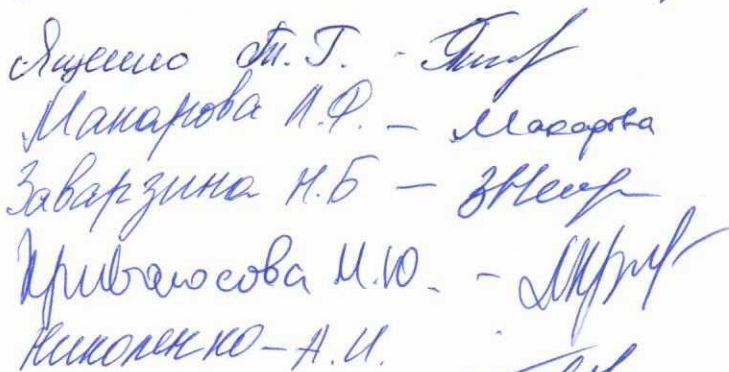 Ященко Т. Г. -
Макарова Н.Ф. - Макарова
Заварзина Н.Б -
Кривоносова М.Ю. -
Николенко - А.И.